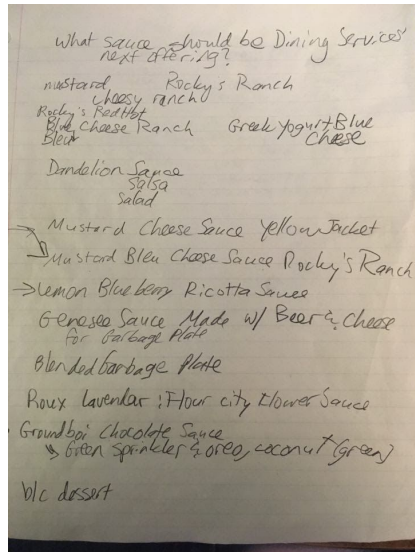 What sauce should be Dining Services'
next offering?
mustard Rocky's Ranch
cheesy ranch
Rocky's RedHot
Blue Cheese Ranch Greek Yogurt Blue
Bleu Cheese
Dandelion Sauce
Salsa
Salad
→ Mustard Cheese Sauce Yellow Jacket
↳ Mustard Bleu Cheese Sauce Rocky's Ranch
→ Lemon Blueberry Ricotta Sauce
Genesee Sauce Made w/ Beer & Cheese
for Garbage Plate
Blended Garbage Plate
Roux Lavendar : Flour city Flower Sauce
Groundboi Chocolate Sauce
↳ Green Sprinkler & oreo, coconut (green)
b/c dessert